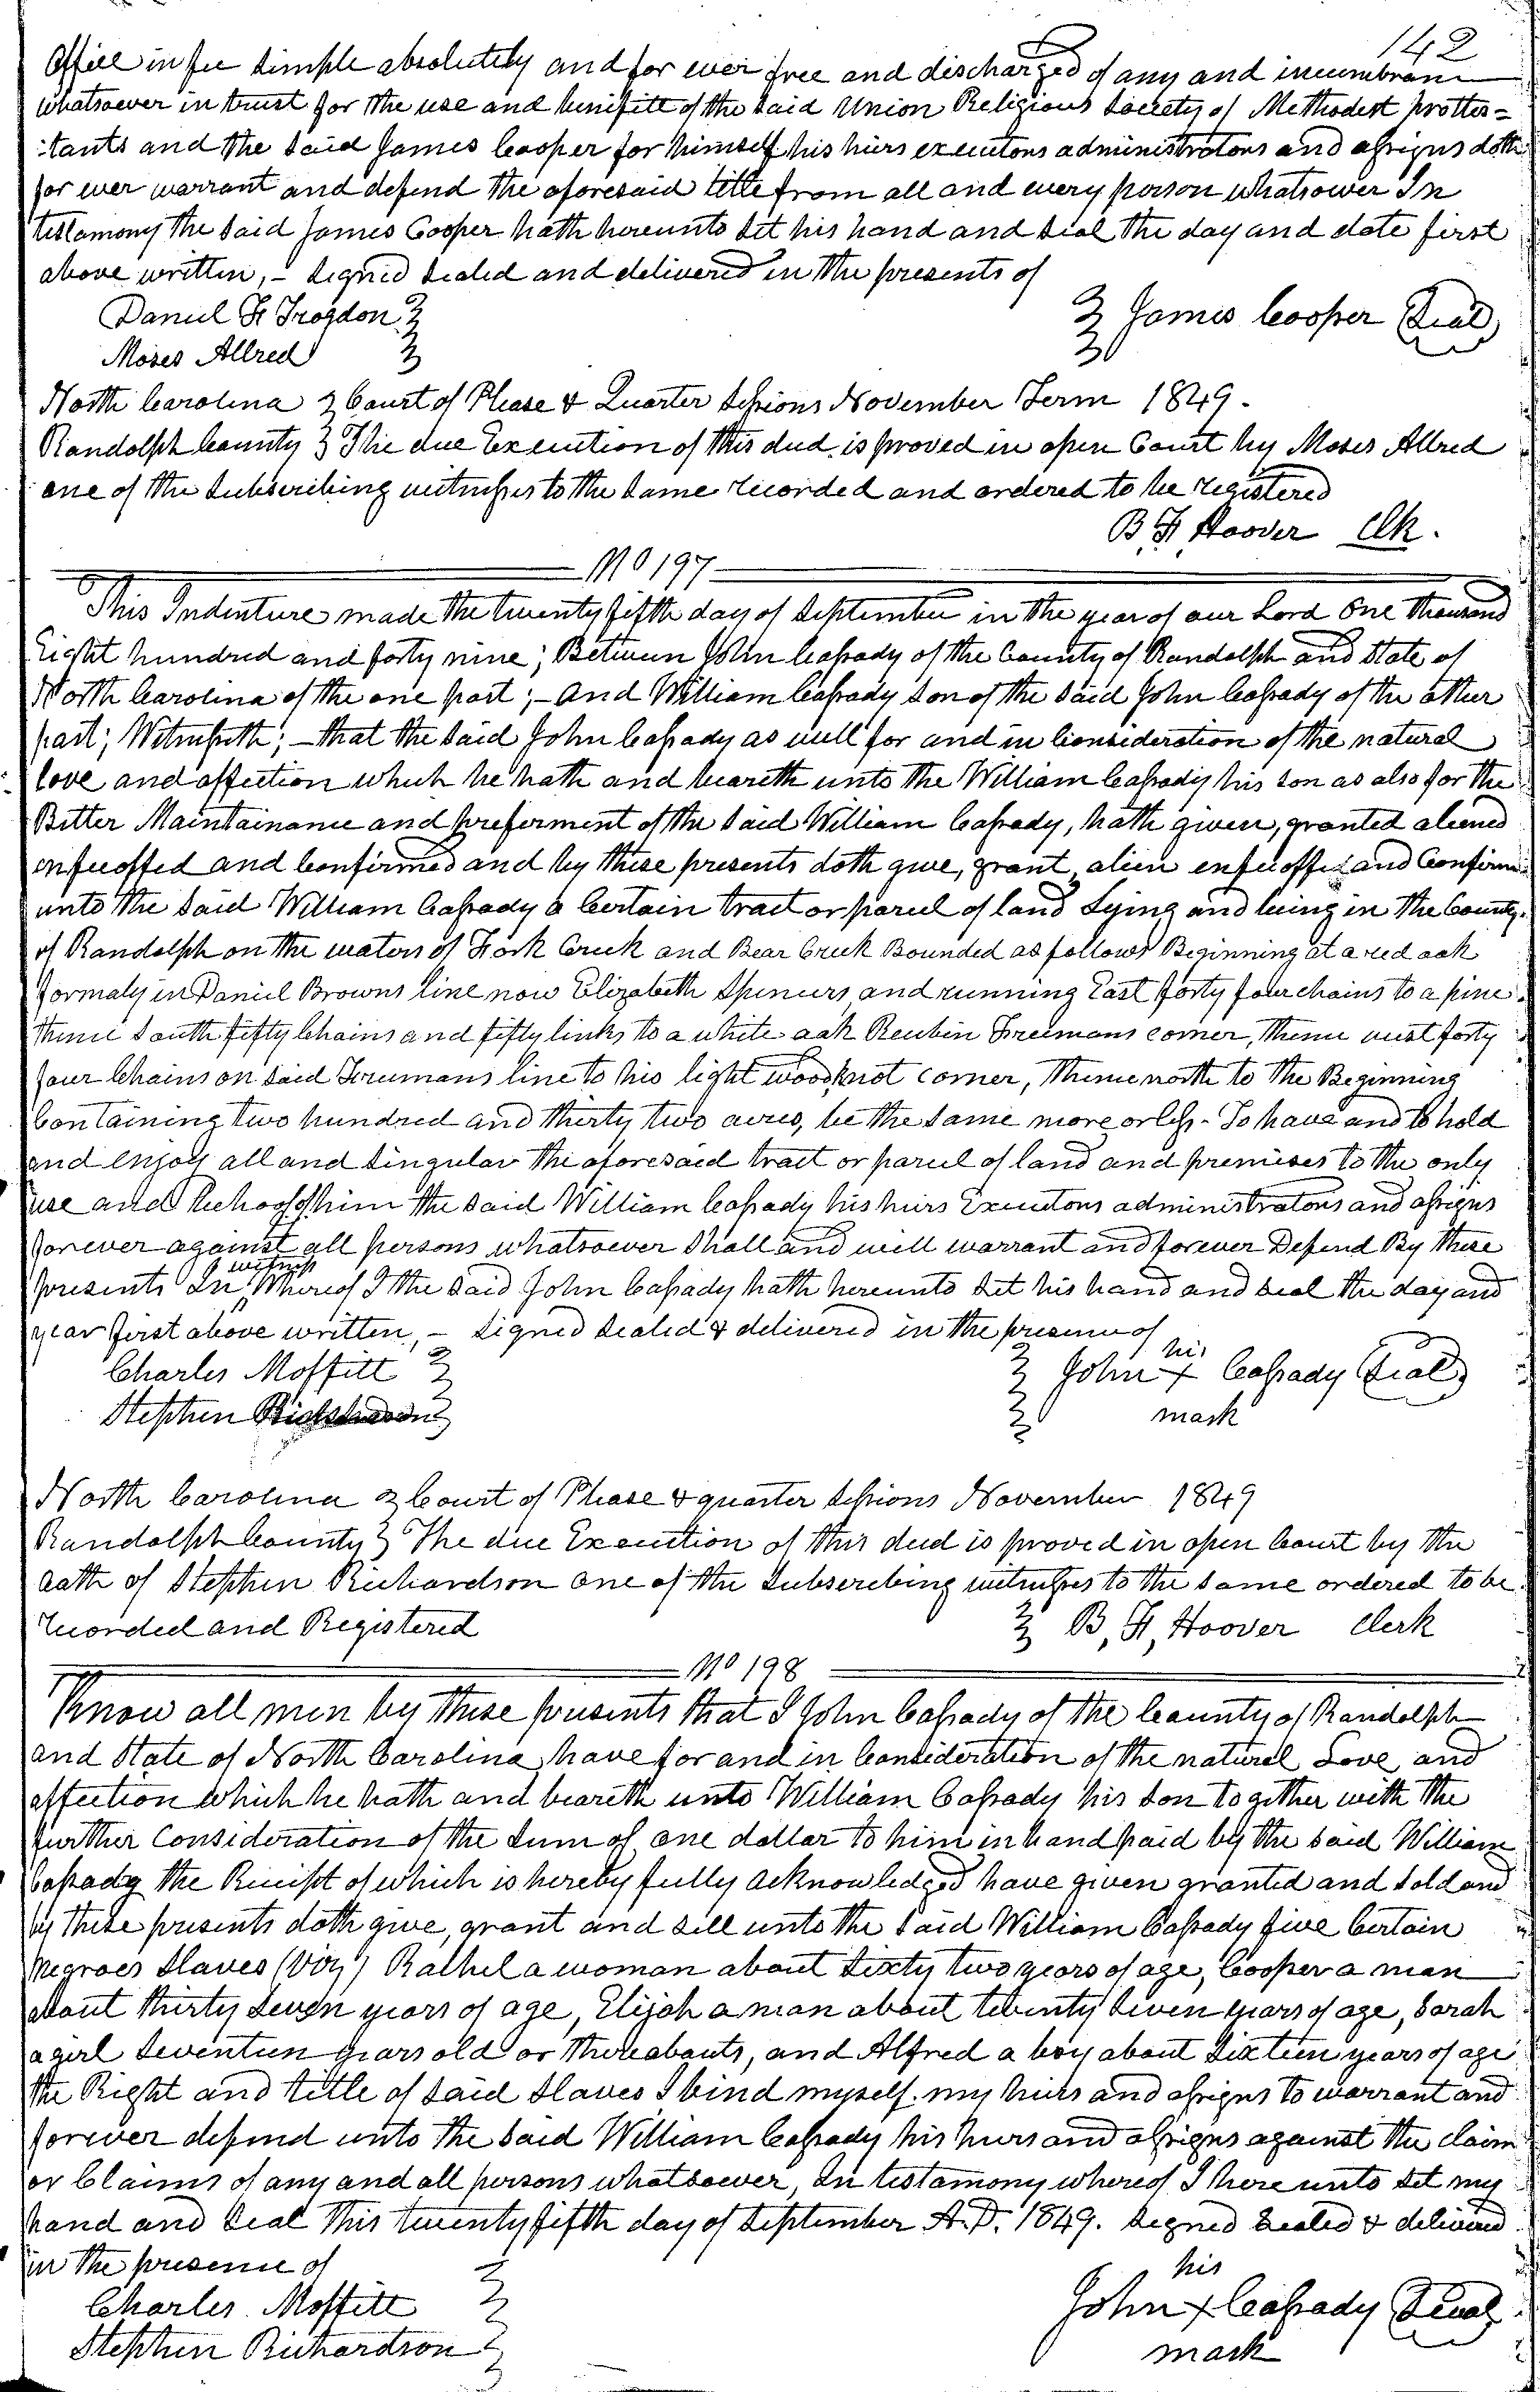 142
Office in fee simple absolutely and for ever free and discharged of any and incumbrance
whatsoever in trust for the use and benifitt of the said Union Religious Society of Methodest prottes=
:tants and the said James Cooper for himself his heirs executors administrators and assigns doth
for ever warrant and defend the aforesaid title from all and every person whatsoever In
testamony the said James Cooper hath hereunto set his hand and seal the day and date first
above written, - Signed Sealed and delivered in the presents of
Daniel F Trogdon
James Cooper Seal
Moses Allred
North Carolina Court of Please & Quarter Sessions November Term 1849.
Randolph County The due Execution of this deed is proved in open Court by Moses Allred
one of the subscribing witnesses to the same recorded and ordered to be registered
B F Hoover Clk.
No 197
This Indenture made the twenty fifth day of September in the year of our Lord One thousand
Eight hundred and forty nine; Between John Cassady of the County of Randolph and State of
North Carolina of the one part; - and William Cassady son of the said John Cassady of the other
part; Witnesseth; - that the said John Cassady as well for and in Consideration of the natural
love and affection which he hath and beareth unto the William Cassady his son as also for the
Better Maintainance and preferment of the said William Cassady, hath given, granted aliened
enfeoffed and Confirmed and by these presents doth give, grant, alien enfeoffed and Confirm
unto the said William Cassady a Certain tract or parcel of land Lying and being in the County
of Randolph on the waters of Fork Creek and Bear Creek Bounded as follows Beginning at a red oak
formaly in Daniel Browns line now Elizabeth Spencers and running East forty four chains to a pine
thence South fifty Chains and fifty links to a white oak Reuben Freemans corner, thence west forty
four Chains on said Freemans line to his light wood knot corner, thence north to the Beginning
Containing two hundred and thirty two acres, be the same more or less - To have and to hold
and enjoy all and singular the aforesaid tract or parcel of land and premises to the only
use and behoof of him the said William Cassady his heirs Executors administrators and assigns
forever against all persons whatsoever shall and will warrant and forever Defend By these
presents In witness Whereof I the said John Cassady hath hereunto set his hand and seal the day and
year first above written, - Signed Sealed & delivered in the presence of
Charles Moffitt
his
John + Cassady Seal
mark
Stephen Richardson
North Carolina Court of Please & quarter Sessions November 1849
Randolph County The due Execution of this deed is proved in open Court by the
oath of Stephen Richardson one of the subscribing witnesses to the same ordered to be
recorded and Registered
B, F, Hoover Clerk
No 198
Know all men by these presents that I John Cassady of the County of Randolph
and State of North Carolina have for and in Consideration of the natural Love and
affection which he hath and beareth unto William Cassady his son together with the
further Consideration of the sum of one dollar to him in hand paid by the said William
Cassady the Receipt of which is hereby fully acknowledged have given granted and sold and
by these presents doth give, grant and sell unto the said William Cassady five Certain
Negroes Slaves (Viz) Rathel a woman about sixty two years of age, Cooper a man
about thirty seven years of age, Elijah a man about twenty seven years of age, Sarah
a girl seventeen years old or thereabouts, and Alfred a boy about sixteen years of age
the Right and title of said slaves I bind myself my heirs and assigns to warrant and
forever defend unto the said William Cassady his heirs and assigns against the claim
or Claims of any and all persons whatsoever, In testamony whereof I hereunto set my
hand and seal this twenty fifth day of September A.D. 1849. Signed Sealed & delivered
in the presence of
Charles Moffitt
his
John + Cassady Seal
mark
Stephen Richardson